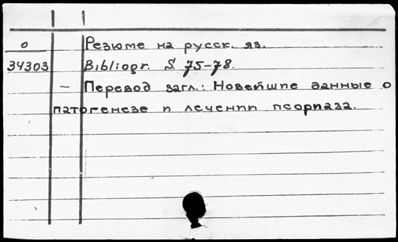 о Резюме на русск. яз.
34303 Bibliogr. S. 75-78.
— Перевод загл.: Новейшие данные о
патогенезе и лечении псориаза.